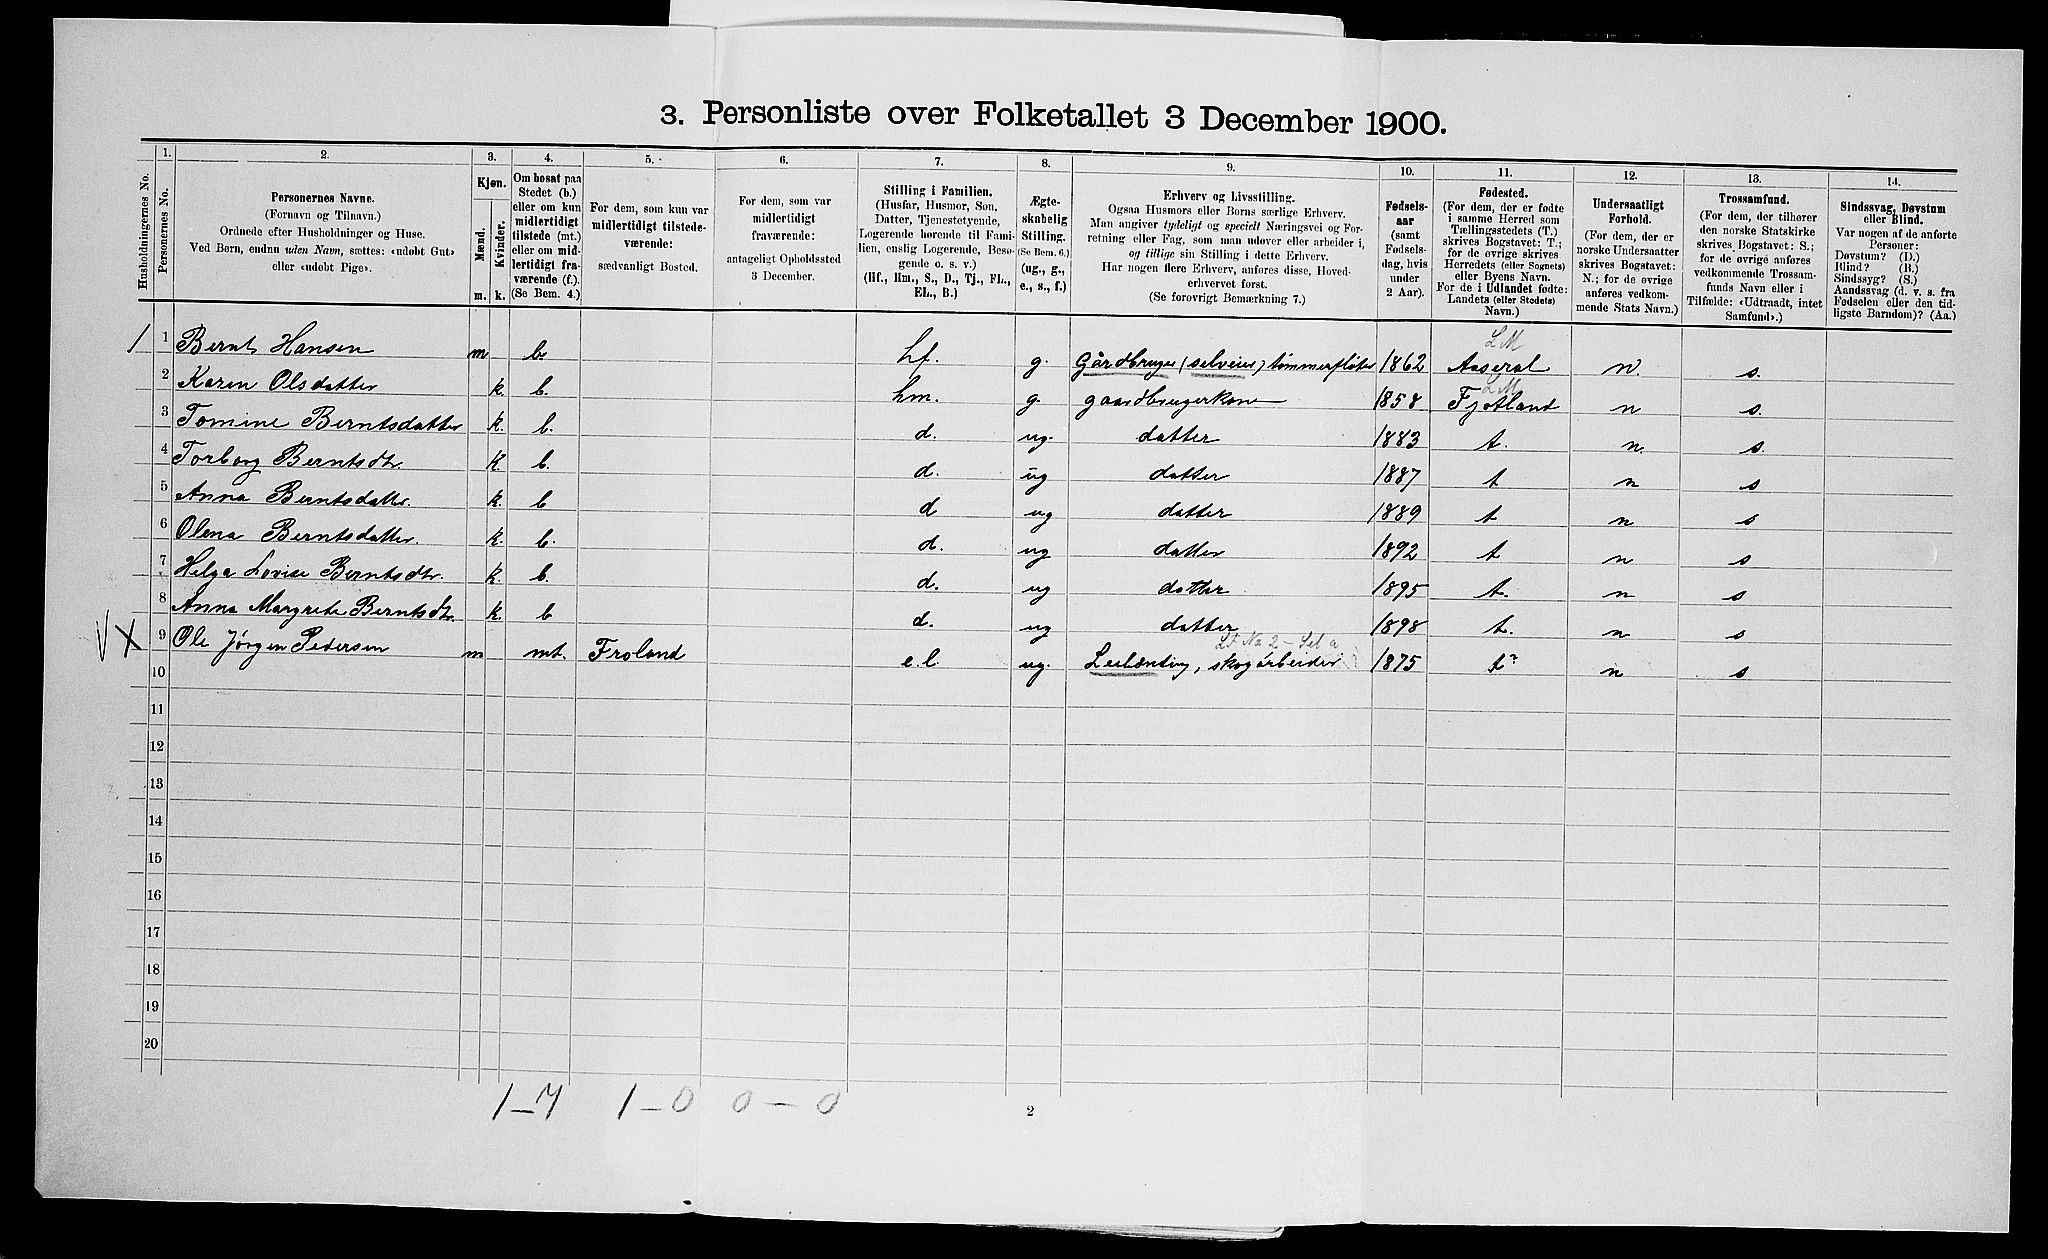 3. Personliste over Folketallet 3 December 1900.
Husholdningernes No.
1.
Personernes No.
2.
Personernes Navne.
(Fornavn og Tilnavn.)
Ordnede efter Husholdninger og Huse.
Ved Børn, endnu uden Navn, sættes: «udøbt Gut»
eller «udøbt Pige».
3.
Kjøn.
Mænd.
Kvinder.
m. k.
4.
Om bosat paa
Stedet (b.)
eller om kun
midlertidigt
tilstede (mt.)
eller om mid-
lertidigt fra-
værende (f.).
(Se Bem. 4.)
5.
For dem, som kun var
midlertidigt tilstede-
værende:
sædvanligt Bosted.
6.
For dem, som var
midlertidigt
fraværende:
antageligt Opholdssted
3 December.
7.
Stilling i Familien.
(Husfar, Husmor, Søn,
Datter, Tjenestetyende,
Logerende hørende til Fami-
lien, enslig Logerende, Besø-
gende o. s. v.)
(Hf., Hm., S., D., Tj., FL.,
EL., B.)
8.
Ægte-
skabelig
Stilling.
(Se Bem. 6.)
(ug., g.,
e., s., f.)
9.
Erhverv og Livsstilling.
Ogsaa Husmors eller Børns særlige Erhverv.
Man angiver tydeligt og specielt Næringsvei og For-
retning eller Fag, som man udøver eller arbeider i,
og tillige sin Stilling i dette Erhverv.
Har nogen flere Erhverv, anføres disse, Hoved-
erhvervet først.
(Se forøvrigt Bemærkning 7.)
10.
Fødsels-
aar
(samt
Fødsels-
dag, hvis
under
2 Aar).
11.
Fødested.
(For dem, der er fødte
i samme Herred som
Tællingsstedets (T.)
skrives Bogstavet: T.;
for de øvrige skrives
Herredets (eller Sognets)
eller Byens Navn.
For de i Udlandet fødte:
Landets (eller Stedets)
Navn.)
12.
Undersaatligt
Forhold.
(For dem, der er
norske Undersaatter
skrives Bogstavet:
N.; for de øvrige
anføres vedkom-
mende Stats Navn.)
13.
Trossamfund.
(For dem, der tilhører
den norske Statskirke
skrives Bogstavet: S.;
for de øvrige anføres
vedkommende Trossam-
funds Navn eller i
Tilfælde: «Udtraadt, intet
Samfund».)
14.
Sindssvag, Døvstum
eller Blind.
Var nogen af de anførte
Personer:
Døvstum? (D.)
Blind? (B.)
Sindssyg? (S.)
Aandssvag (d. v. s. fra
Fødselen eller den tid-
ligste Barndom)? (Aa.)
1 1 Bernt Hansen m b. hf. g. Gårdbruger (selveier) tømmerfløter 1862 LM Aaseral n. s.
2 Karen Olsdatter k. b. hm. g. gaardbrugerkone 1858 LM Fjotland n s.
3 Tomine Berntsdatter k. b. d. ug. datter 1883 t. n. s.
4 Torborg Berntsdtr. k. b. d. ug datter 1887 t n s
5 Anna Berntsdatter. k. b d ug datter 1889 t n s
6 Olena Berntsdatter. k. b. d. ug datter 1892 t n s
7 Helga Lovise Berntsdtr. k. b. d. ug datter 1895 t. n s
8 Anna Margrete Berntsdtr. k. b d. ug datter 1898 t. n s
V X 9 Ole Jørgen Pedersen m mt. Froland e.l. ug. Leilænding, skogarbeider 1875 t? n s
10
11
12
13
14
15
16
17
18
19
20
1 – 7 1 – 0 0 – 0
2